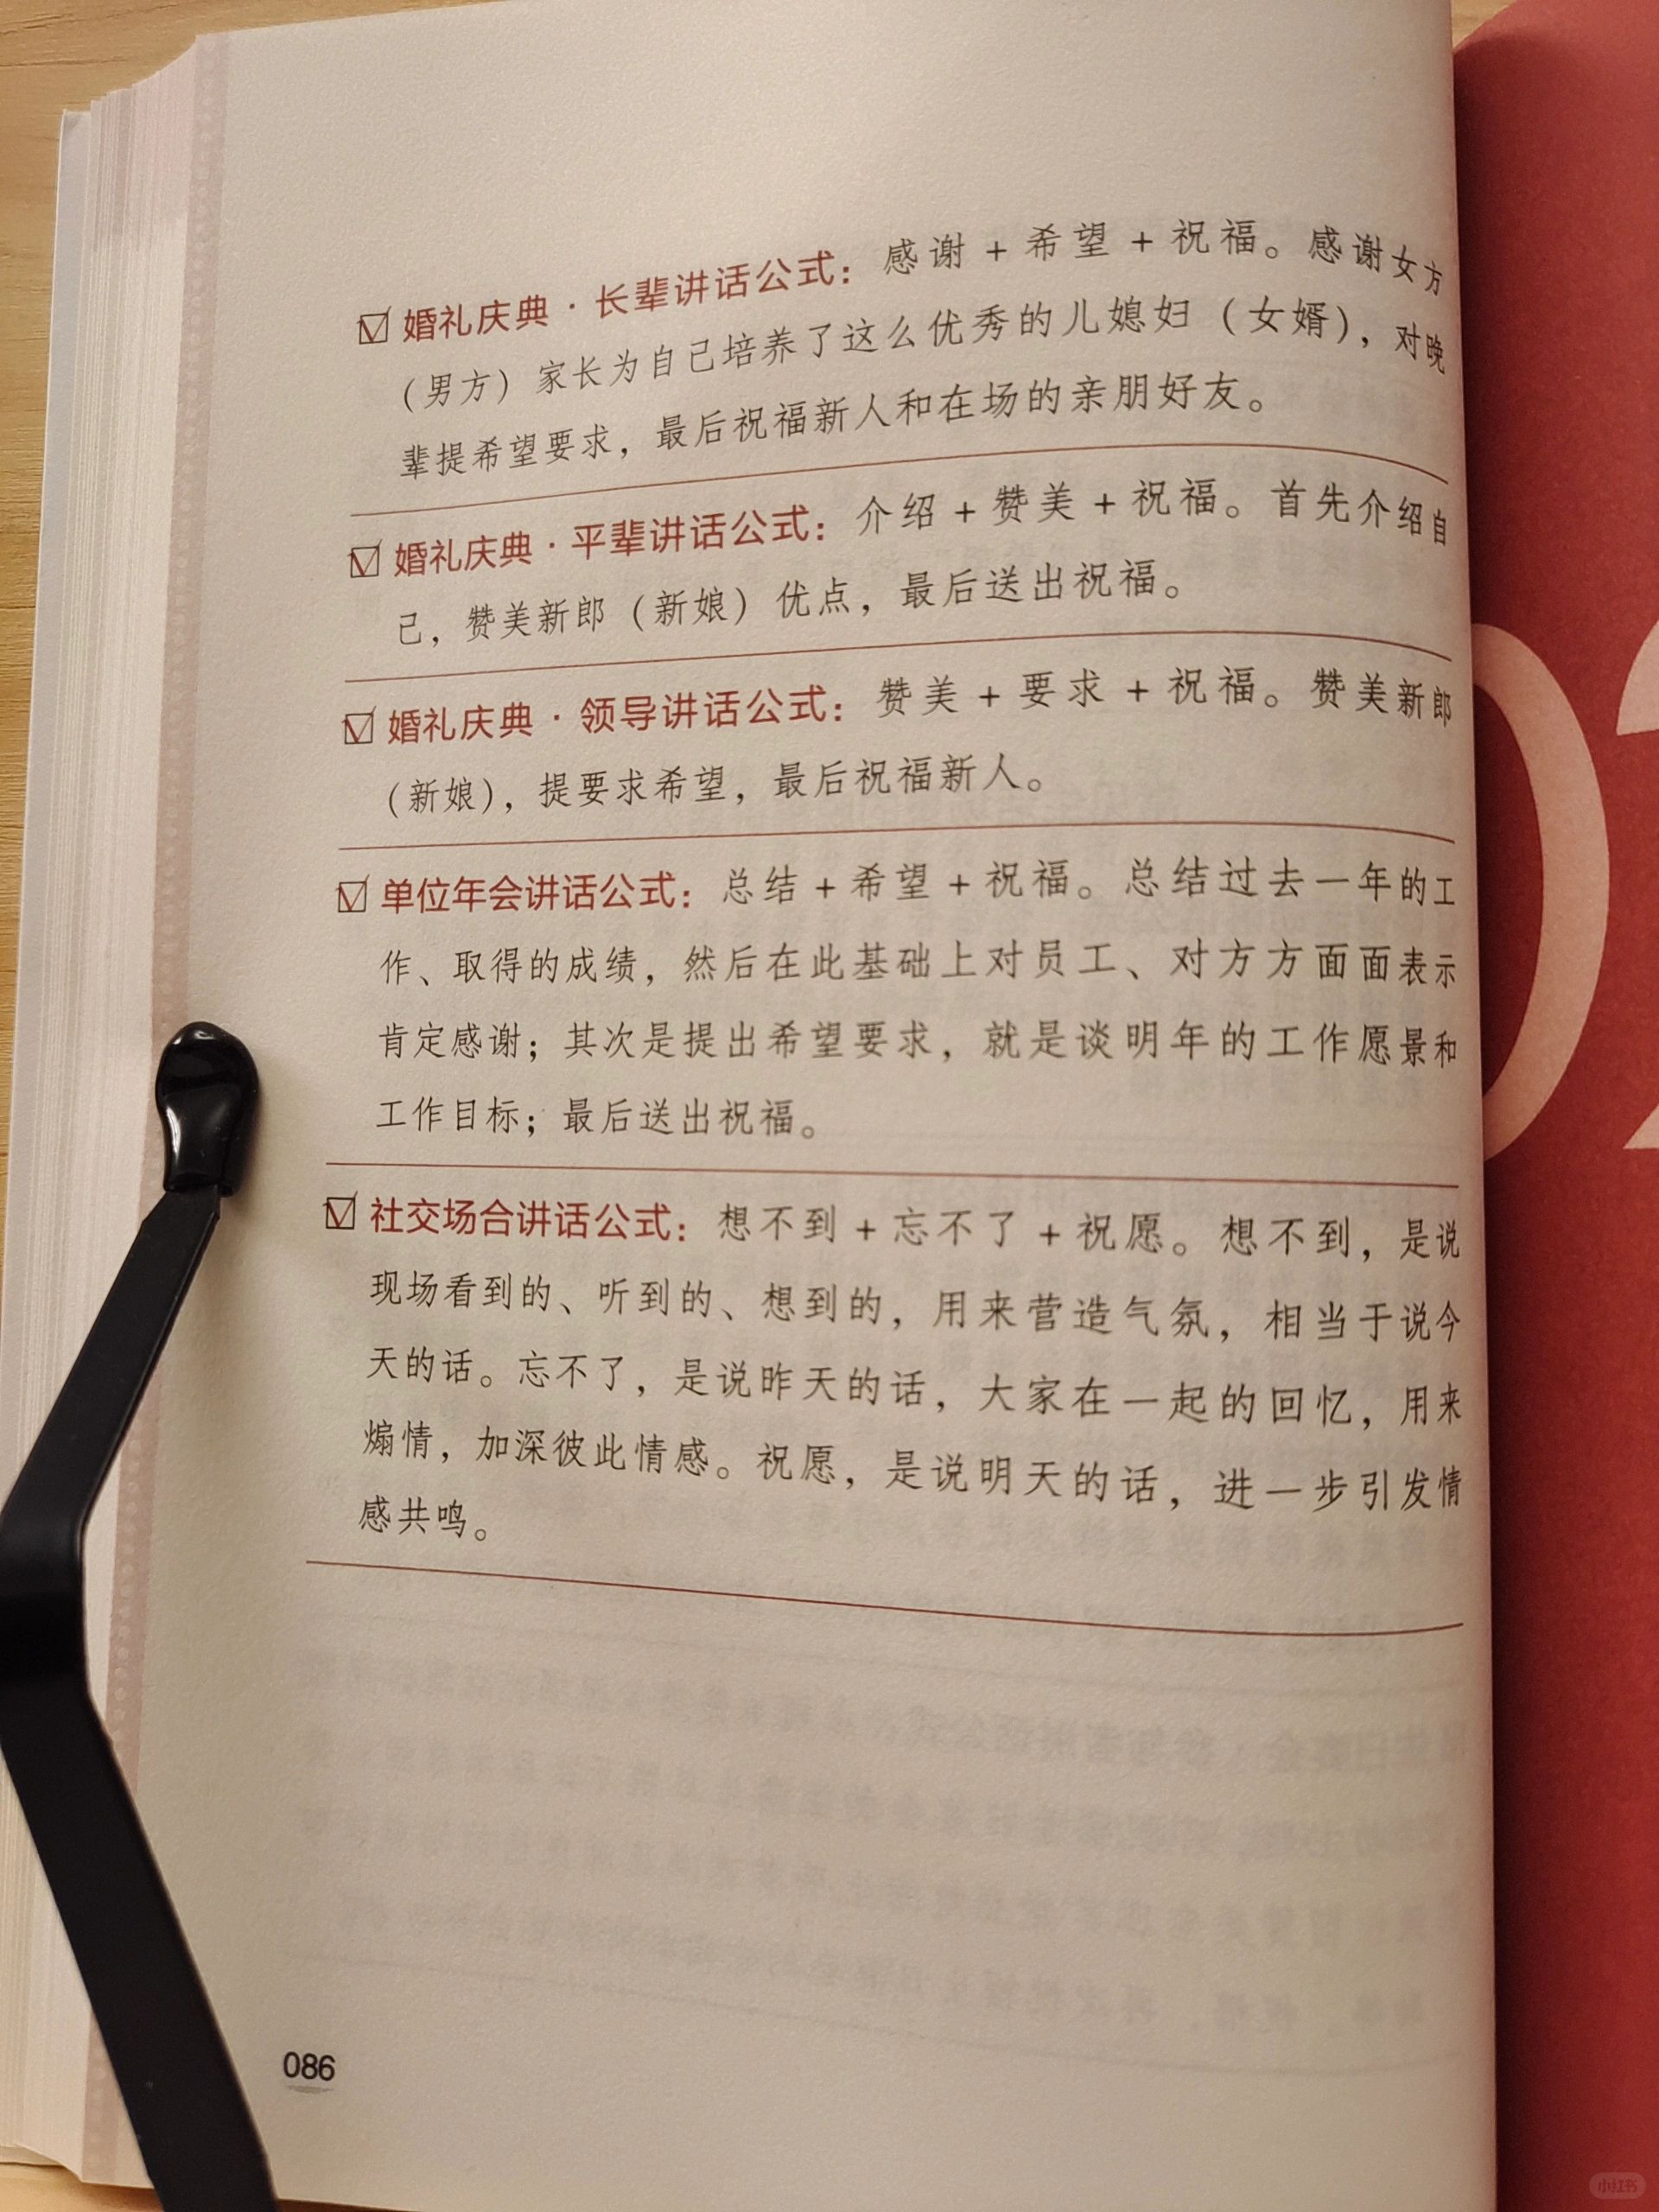 婚礼庆典·长辈讲话公式：感谢+希望+祝福。感谢女方
（男方）家长为自己培养了这么优秀的儿媳妇（女婿），对晚
辈提希望要求，最后祝福新人和在场的亲朋好友。
婚礼庆典·平辈讲话公式：介绍+赞美+祝福。首先介绍自
己，赞美新郎（新娘）优点，最后送出祝福。
婚礼庆典·领导讲话公式：赞美+要求+祝福。赞美新郎
（新娘），提要求希望，最后祝福新人。
单位年会讲话公式：总结+希望+祝福。总结过去一年的工
作、取得的成绩，然后在此基础上对员工、对方方面面表示
肯定感谢；其次是提出希望要求，就是谈明年的工作愿景和
工作目标；最后送出祝福。
社交场合讲话公式：想不到+忘不了+祝愿。想不到，是说
现场看到的、听到的、想到的，用来营造气氛，相当于说今
天的话。忘不了，是说昨天的话，大家在一起的回忆，用来
煽情，加深彼此情感。祝愿，是说明天的话，进一步引发情
感共鸣。
086
02
小红书